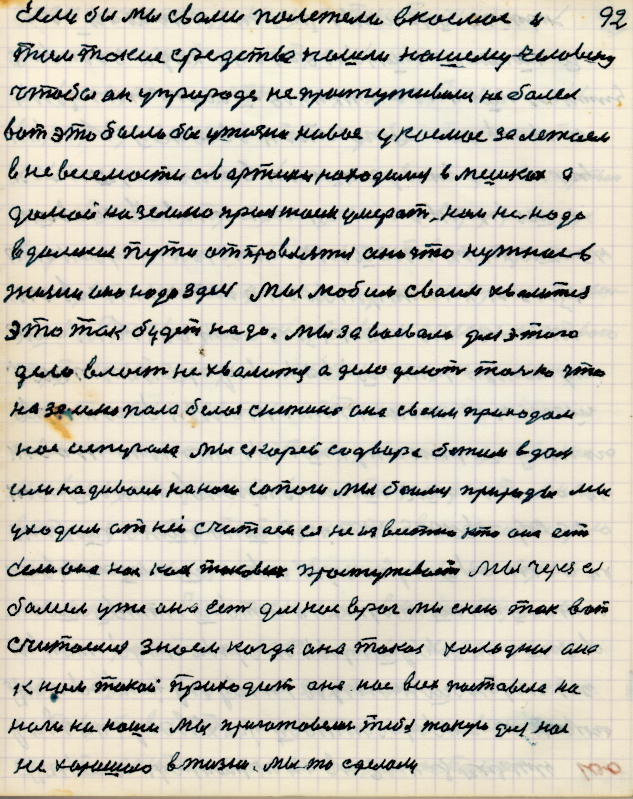 Если бы мы свами полетели вкосмос и 92
там такие средства нашли нашему человеку
чтобы он уприроде не простуживался не болел
вот это было бы ужизни новое укосмос залетаем
в невесемости спортики находимся в мешках а
домой на землю приезжаем умерат, нам не надо
вдалекие пути отправлятся оно что нужное в
жизни оно надо здесь мы любим своим хвалится
это так будет надо. мы за воевали для этого
дела власт не хвалится а дело делат только что
на землю пала белая снежина она своим приходом
нас испугала мы скорей содвора бежим вдом
или надиваем на ноги сапоги мы боимся природы мы
уходим от ней считается неизвестно кто она ест
если она нас как таковых простуживает мы через ее
болеем уже она ест для нас враг мы снею так вот
считаемся знаем когда она такая холодная она
к нам такой приходит она нас всех поставела на
ноги на наши мы приготовели тебя такую для нас
не хорошаю вжизни. мы то сделали